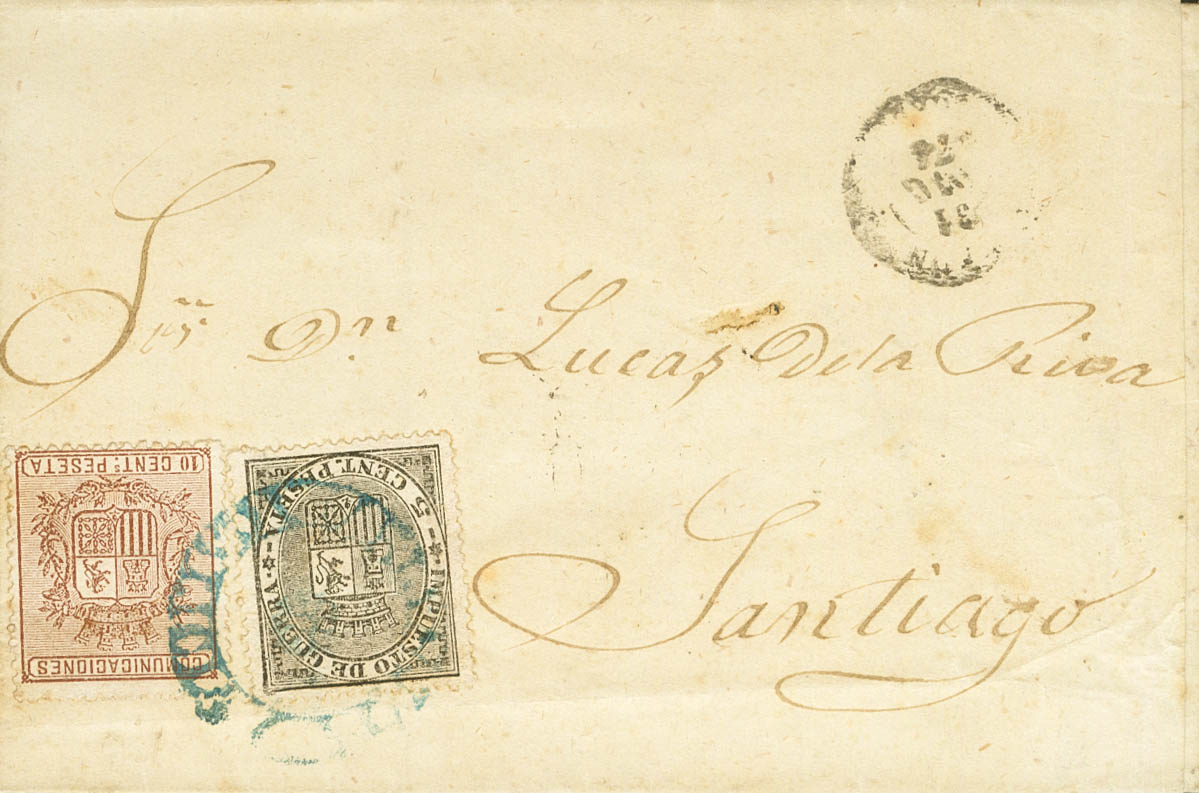 74
DIC
31
Sr. Dn Lucas De la Riva
10 CENTS. PESETA
COMUNICACIONES
5 CENT. PESETA
IMPUESTO DE GUERRA
Santiago